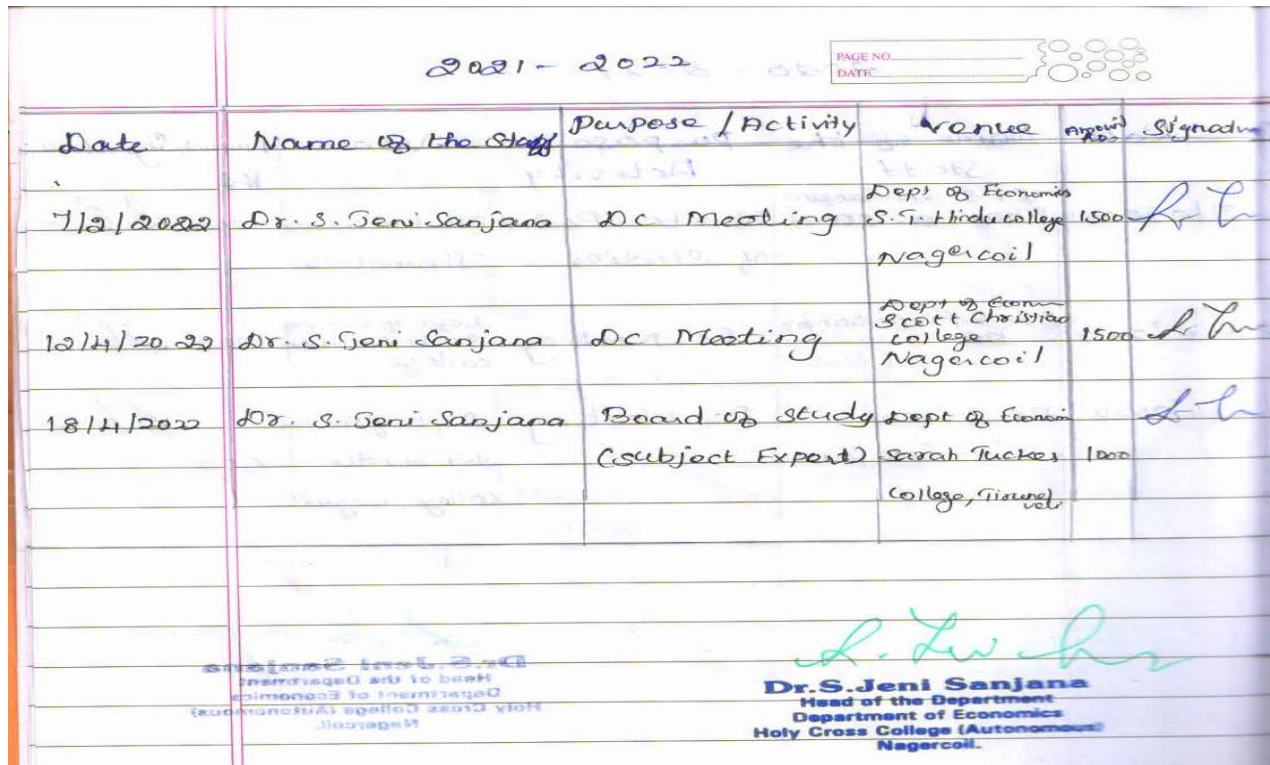 2021 - 2022
PAGE NO.
DATE
Date Name of the Staff Purpose / Activity Venue Amount Rs. Signature
7/2/2022 Dr. S. Jeni Sanjana DC Meeting Dept of Economics S.T. Hindu college Nagercoil 1500
12/4/2022 Dr. S. Jeni Sanjana DC Meeting Dept of Econ Scott Christian college Nagercoil 1500
18/4/2022 Dr. S. Jeni Sanjana Board of Study (Subject Expert) Dept of Economi Sarah Tucker College, Tirunelveli 1000
Dr.S.Jeni Sanjana
Head of the Department
Department of Economics
Holy Cross College (Autonomous)
Nagercoil.